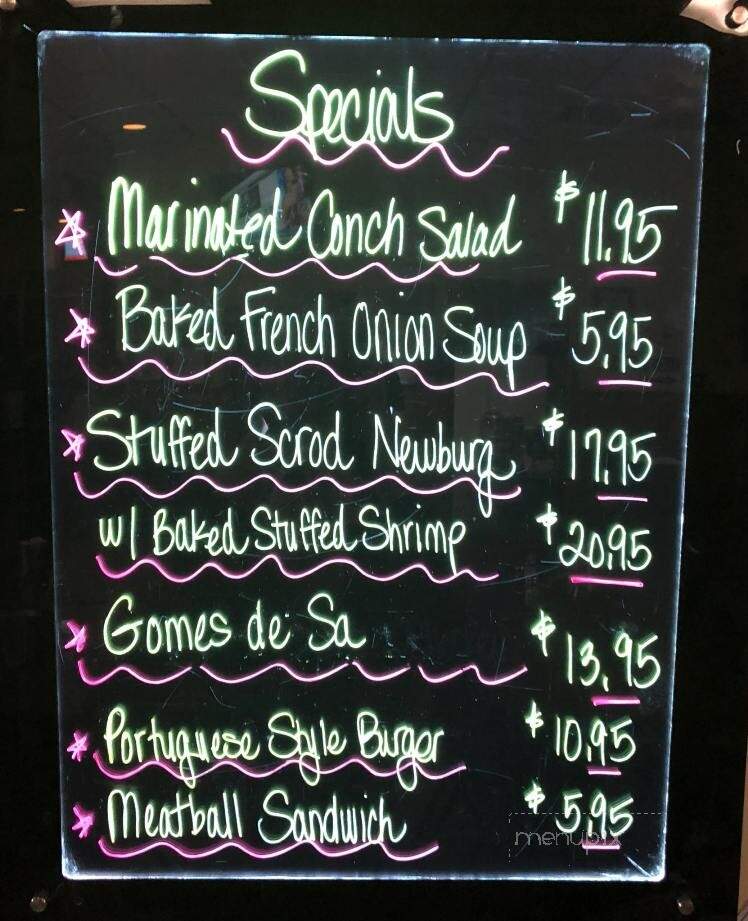 Specials
Marinated Conch Salad $11.95
Baked French Onion Soup $5.95
Stuffed Scrod Newburg $17.95
w/ Baked Stuffed Shrimp $20.95
Gomes de Sa $13.95
Portuguese Style Burger $10.95
Meatball Sandwich $5.95
menupix